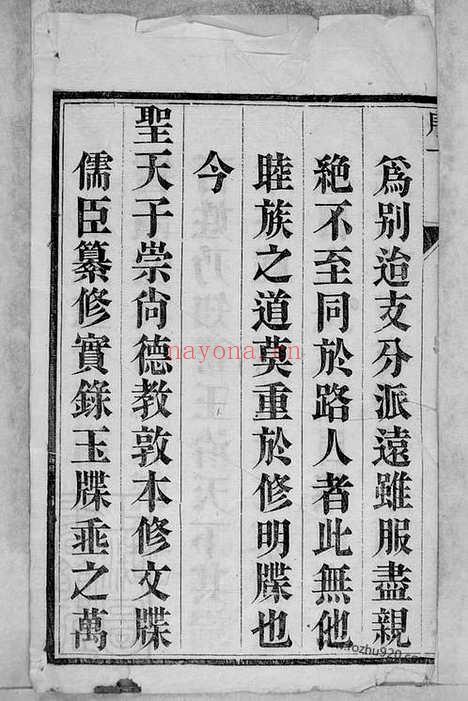 爲别迨支分派遠雖服盡親
絶不至同於路人者此無他
睦族之道莫重於修明牒也
今
聖天子崇尙德教敦本修文牒
儒臣纂修實錄玉牒垂之萬
nayona.cn
www.laozhu920.com